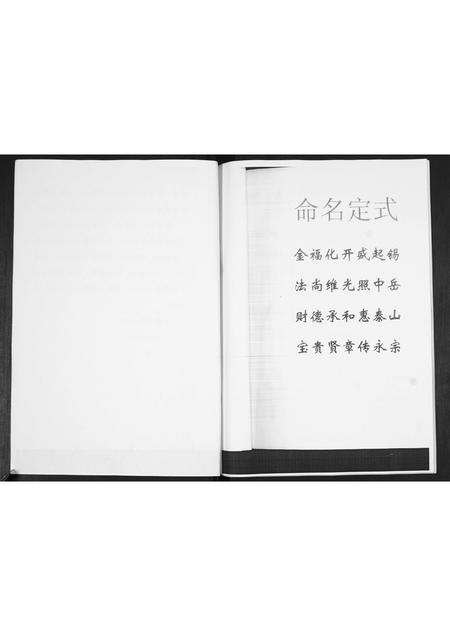 命名定式
金福化开盛起锡
法尚维光照中岳
财德承和惠泰山
宝贵贤章传永宗